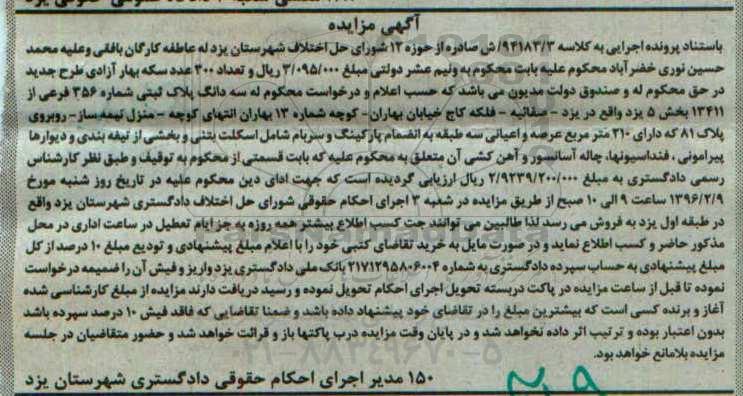 آگهی مزایده
باستناد پرونده اجرایی به کلاسه ۹۴۱۸۳/۳/ ش صادره از حوزه ۱۲ شورای حل اختلاف شهرستان یزد له عاطفه کارگان بافقی وعلیه محمد
حسین نوری خضرآباد محکوم علیه بابت محکوم به ونیم عشر دولتی مبلغ ۳/۰۹۵/۰۰۰ ریال و تعداد ۳۰۰ عدد سکه بهار آزادی طرح جدید
در حق محکوم له و صندوق دولت مدیون می باشد که حسب اعلام و درخواست محکوم له سه دانگ پلاک ثبتی شماره ۳۵۶ فرعی از
۱۳۴۱۱ بخش ۵ یزد واقع در یزد - صفائیه - فلکه کاج خیابان بهاران - کوچه شماره ۱۳ بهاران انتهای کوچه - منزل نیمه ساز - روبروی
پلاک ۸۱ که دارای ۲۱۰ متر مربع عرصه و اعیانی سه طبقه به انضمام پارکینگ و سربام شامل اسکلت بتنی و بخشی از تیغه بندی و دیوارها
پیرامونی ، فنداسیونها، چاله آسانسور و آهن کشی آن متعلق به محکوم علیه که بابت قسمتی از محکوم به توقیف و طبق نظر کارشناس
رسمی دادگستری به مبلغ ۲/۹۲۳۹/۲۰۰/۰۰۰ ریال ارزیابی گردیده است که جهت ادای دین محکوم علیه در تاریخ روز شنبه مورخ
۱۳۹۶/۲/۹ ساعت ۹ الی ۱۰ صبح از طریق مزایده در شعبه ۳ اجرای احکام حقوقی شورای حل اختلاف دادگستری شهرستان یزد واقع
در طبقه اول یزد به فروش می رسد لذا طالبین می توانند جت کسب اطلاع بیشتر همه روزه به جز ایام تعطیل در ساعت اداری در محل
مذکور حاضر و کسب اطلاع نماید و در صورت مایل به خرید تقاضای کتبی خود را با اعلام مبلغ پیشنهادی و تودیع مبلغ ۱۰ درصد از کل
مبلغ پیشنهادی به حساب سپرده دادگستری به شماره ۲۱۷۱۲۹۵۸۰۶۰۰۴ بانک ملی دادگستری یزد واریز و فیش آن را ضمیمه درخواست
نموده تا قبل از ساعت مزایده در پاکت دربسته تحویل اجرای احکام تحویل نموده و رسید دریافت دارند مزایده از مبلغ کارشناسی شده
آغاز و برنده کسی است که بیشترین مبلغ را در تقاضای خود پیشنهاد داده باشد و ضمنا تقاضایی که فاقد فیش ۱۰ درصد سپرده باشد
بدون اعتبار بوده و ترتیب اثر داده نخواهد شد و در پایان وقت مزایده درب پاکتها باز و قرائت خواهد شد و حضور متقاضیان در جلسه
مزایده بلامانع خواهد بود.
۱۵۰ مدیر اجرای احکام حقوقی دادگستری شهرستان یزد
۰۲۱-۸۸۳۴۹۶۷۰-۵